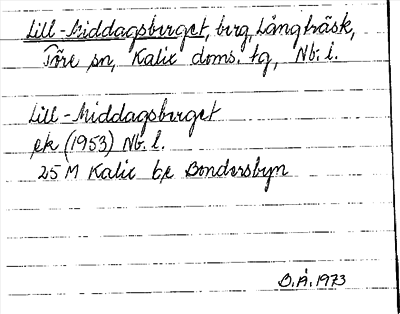 Lill-Middagsberget, berg, Långträsk,
Töre sn, Kalix doms. tg, Nb. l.
Lill-Middagsberget
ek (1953) Nb. l.
25 M Kalix
Bondersbyn
B.Å. 1973